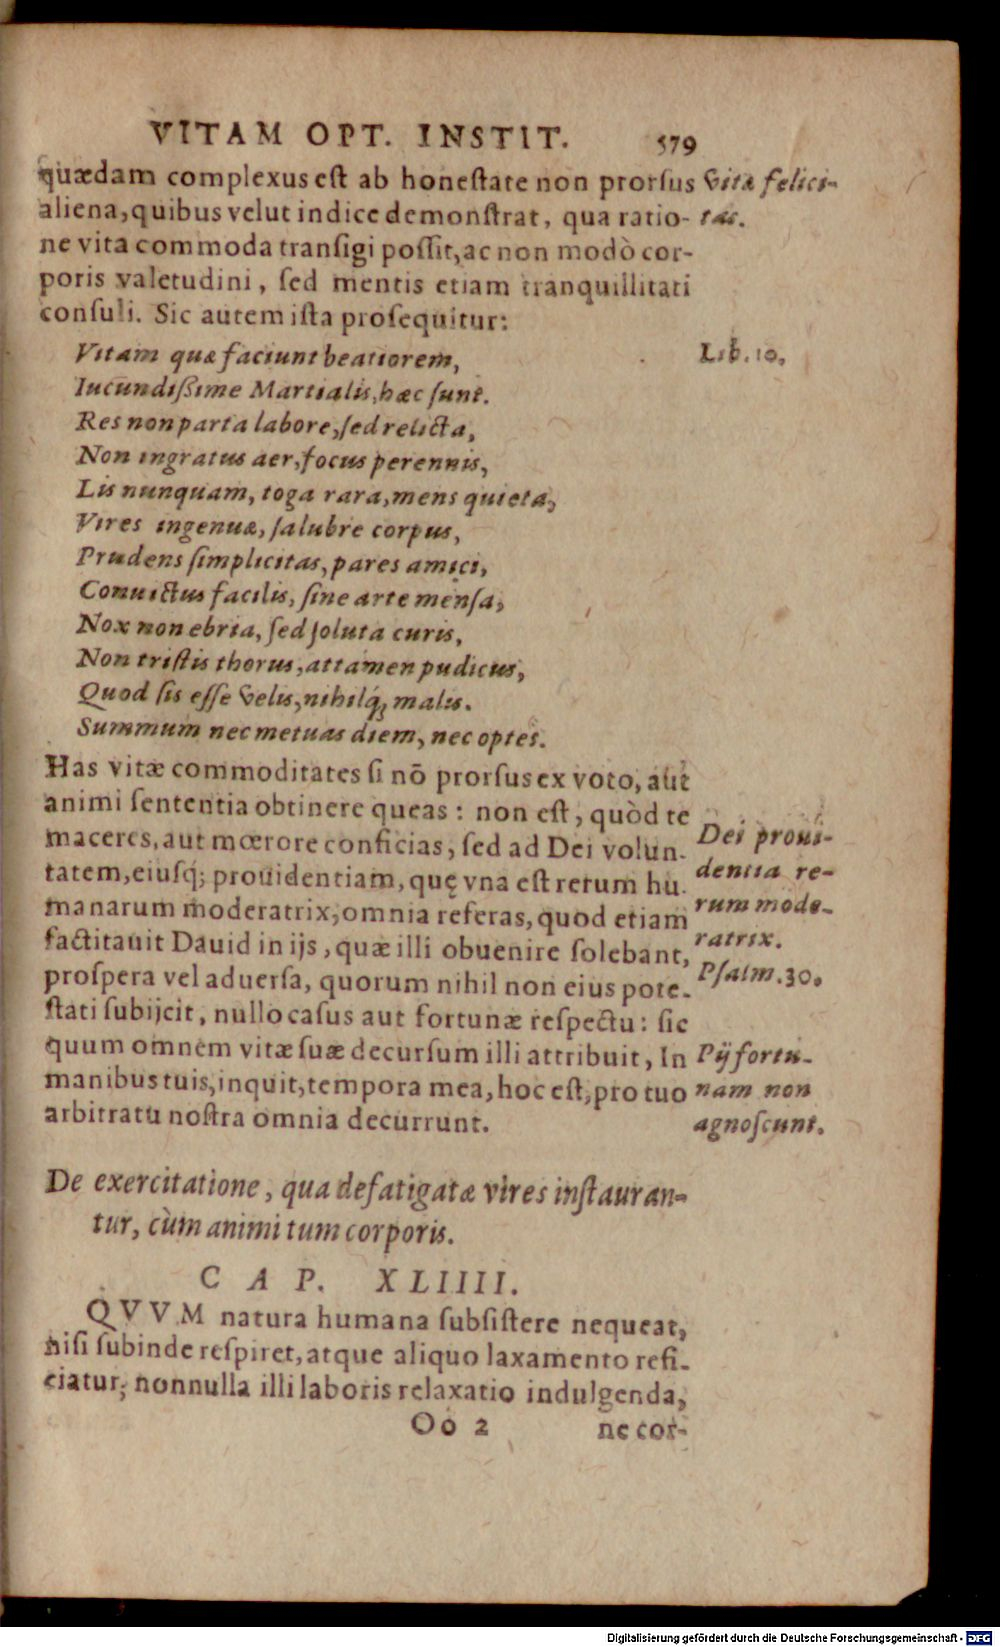 VITAM OPT. INSTIT. 579
quædam complexus est ab honestate non prorsus
aliena, quibus velut indice demonstrat, qua ratio-
ne vita commoda transigi possit, ac non modò cor-
poris valetudini, sed mentis etiam tranquillitati
consuli. Sic autem ista prosequitur:
Vita felici-
tas.
Vitam quæ faciunt beatiorem,
Lib. 10.
Iucundißime Martialis, hæc sunt.
Res non parta labore, sed relicta,
Non ingratus aer, focus perennis,
Lis nunquam, toga rara, mens quieta,
Vires ingenuæ, salubre corpus,
Prudens simplicitas, pares amici,
Conuictus facilis, sine arte mensa,
Nox non ebria, sed soluta curis,
Non tristis thorus, attamen pudicus,
Quod sis esse velis, nihilq́; malis.
Summum nec metuas diem, nec optes.
Has vitæ commoditates si nō prorsus ex voto, aut
animi sententia obtinere queas: non est, quòd te
maceres, aut mœrore conficias, sed ad Dei volun-
tatem, eiusq́; prouidentiam, quę vna est rerum hu-
manarum moderatrix, omnia referas, quod etiam
factitauit Dauid in ijs, quæ illi obuenire solebant,
prospera vel aduersa, quorum nihil non eius pote-
stati subijcit, nullo casus aut fortunæ respectu: sic
quum omnem vitæ suæ decursum illi attribuit, In
manibus tuis, inquit, tempora mea, hoc est, pro tuo
arbitratu nostra omnia decurrunt.
Dei proui-
dentia re-
rum mode-
ratrix.
Psalm. 30.
Pij fortu-
nam non
agnoscunt.
De exercitatione, qua defatigatæ vires instauran-
tur, cùm animi tum corporis.
CAP. XLIIII.
QVVM natura humana subsistere nequeat,
nisi subinde respiret, atque aliquo laxamento refi-
ciatur, nonnulla illi laboris relaxatio indulgenda,
Oo 2 ne cor-
Digitalisierung gefördert durch die Deutsche Forschungsgemeinschaft - DFG